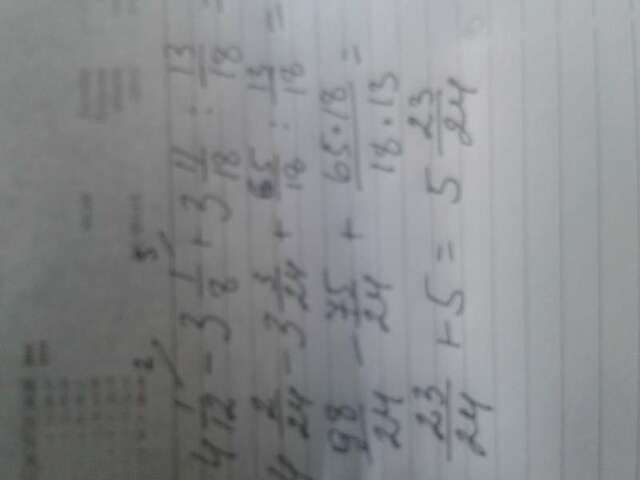 4 1/12 - 3 1/8 + 3 11/18 : 13/18 =
4 2/24 - 3 3/24 + 65/18 : 13/18 =
98/24 - 75/24 + 65·18/18·13 =
23/24 + 5 = 5 23/24